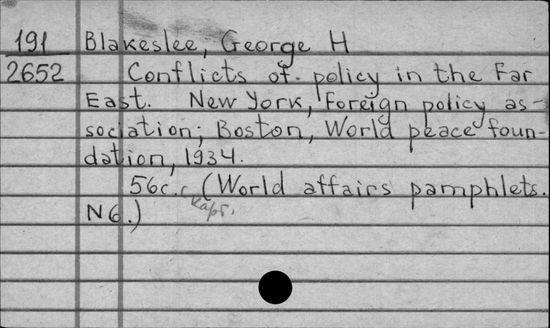 191 Blakeslee, George H
2652 Conflicts of policy in the Far
East. New York, Foreign policy as-
sociation; Boston, World peace foun-
dation, 1934.
56c. (World affairs pamphlets.
N6.) карт.